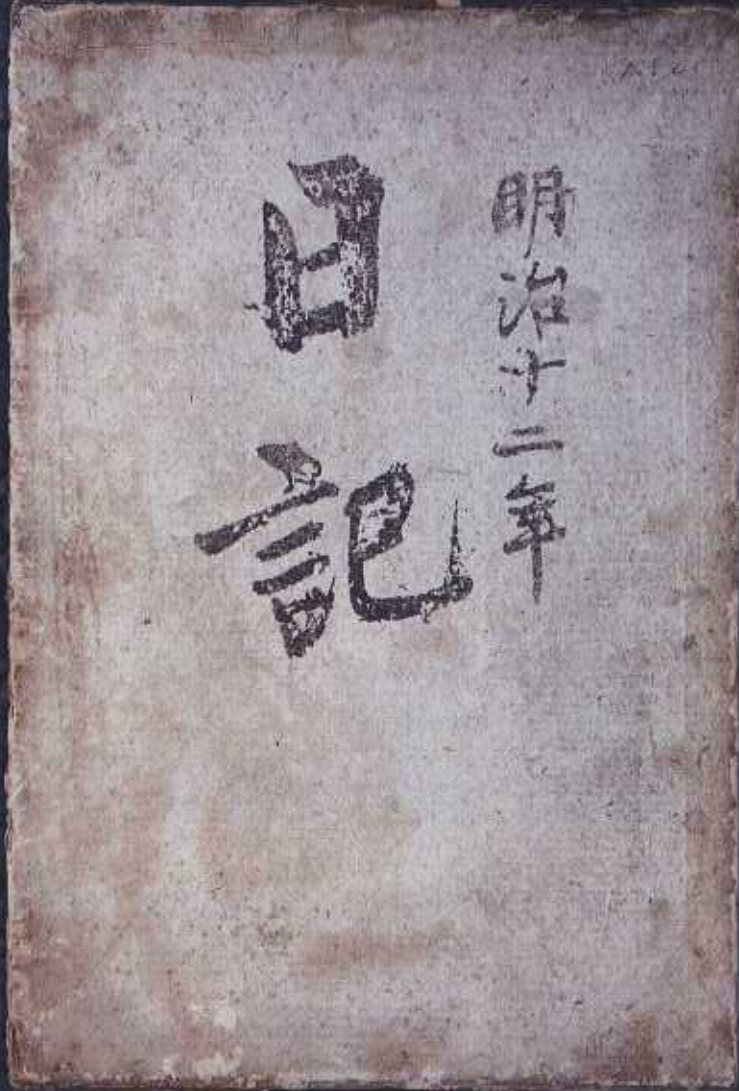 明治十二年
日記